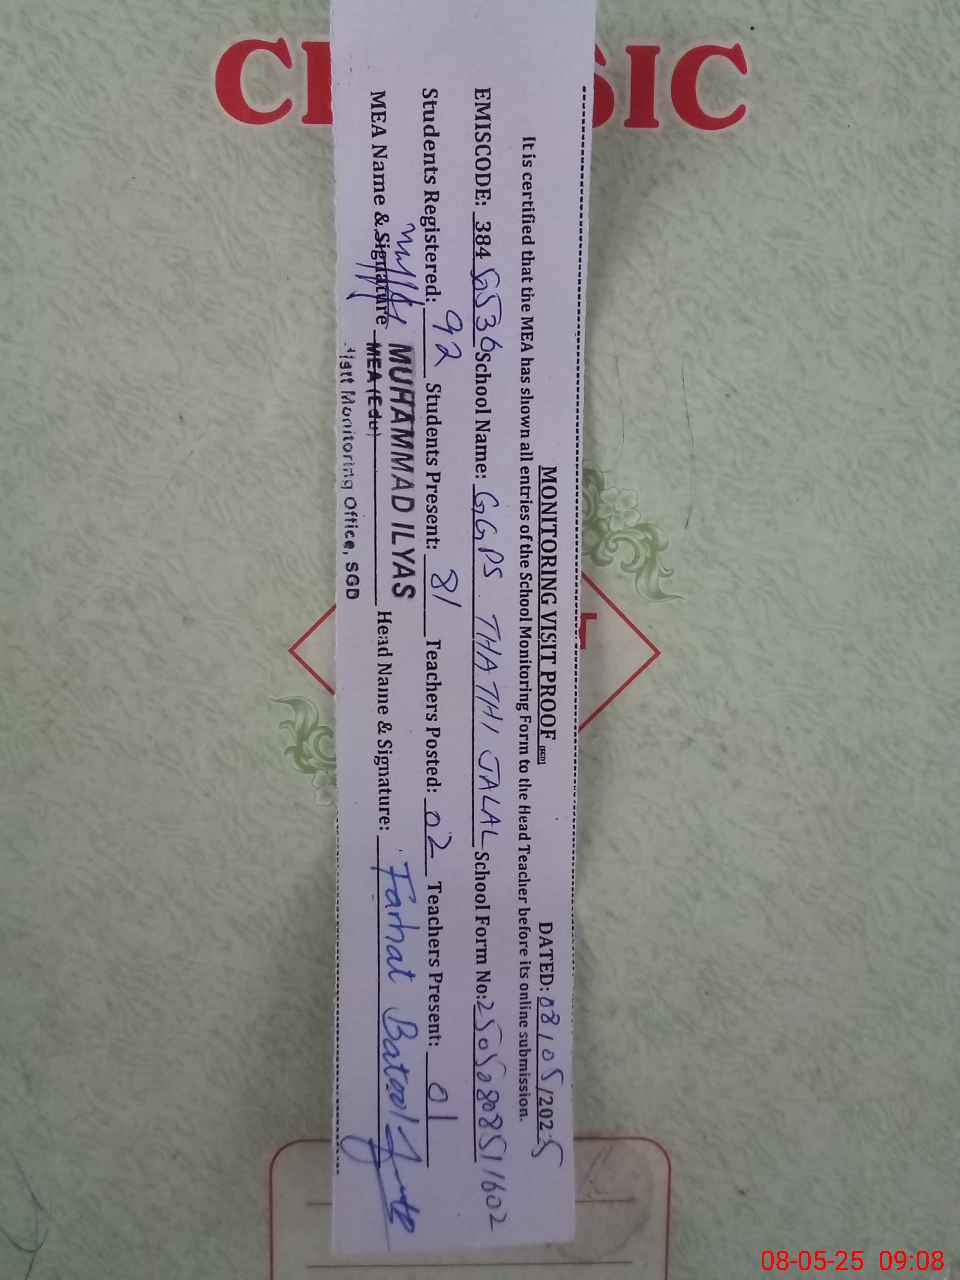 MONITORING VISIT PROOF DATED: 08/05/2025
It is certified that the MEA has shown all entries of the School Monitoring Form to the Head Teacher before its online submission.
EMISCODE: 384 G536 School Name: GGPS THATHI JALAL School Form No: 25050808511602
Students Registered: 92 Students Present: 81 Teachers Posted: 02 Teachers Present: 01
MEA Name & Signature MUHAMMAD ILYAS Head Name & Signature: Farhat Batool
MEA (Edu)
Monitoring Office, SGD
08-05-25 09:08